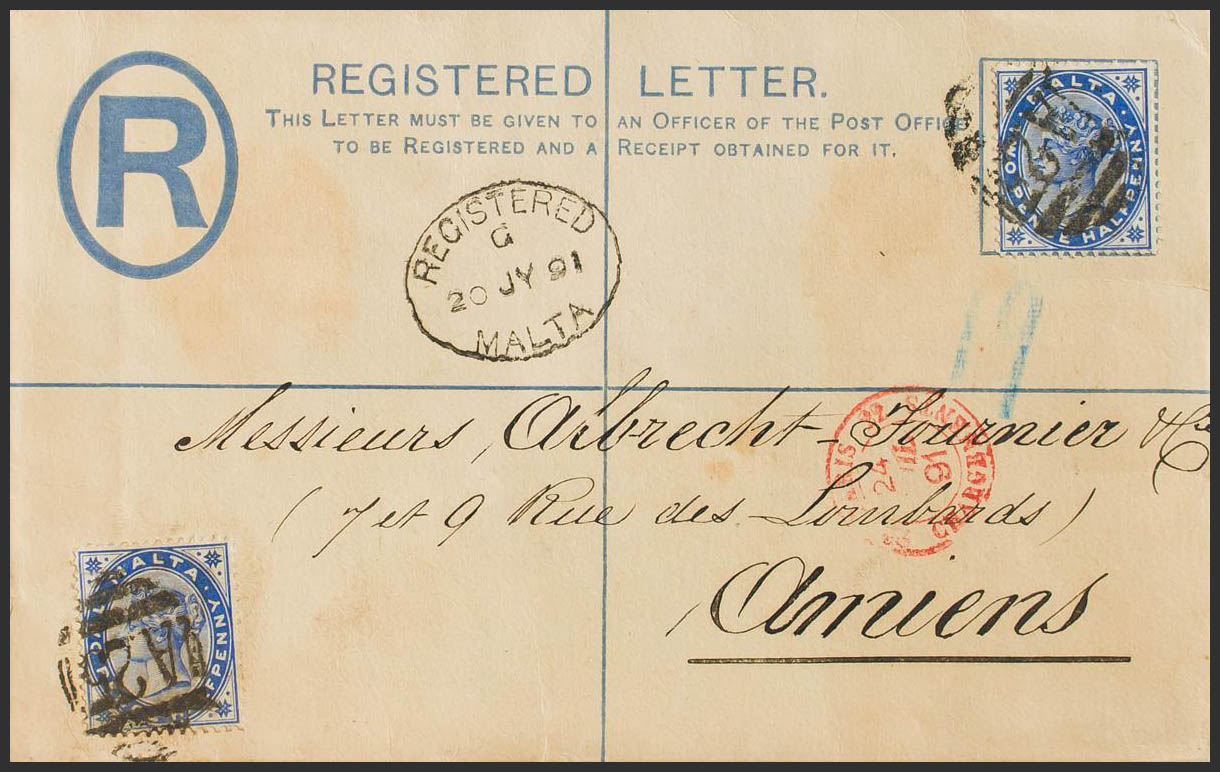 R
REGISTERED LETTER.
THIS LETTER MUST BE GIVEN TO AN OFFICER OF THE POST OFFICE
TO BE REGISTERED AND A RECEIPT OBTAINED FOR IT.
MALTA
ONE PENNY HALFPENNY
REGISTERED
G
20 JY 91
MALTA
Messieurs Albrecht-Fournier & Cie
(7 et 9 Rue des Lombards)
Amiens
24
91
MALTA
HALFPENNY
A25